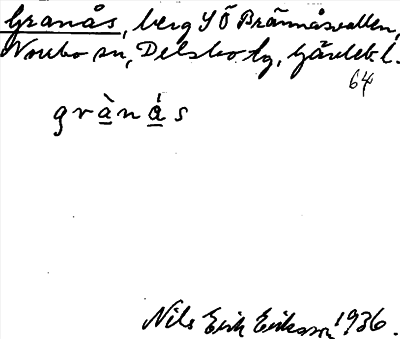 Granås, berg SÖ Brännåsvallen,
Norrbo sn, Delsbo tg, Gävleb. l.
64
grànás
Nils Erik Eriksson 1936.